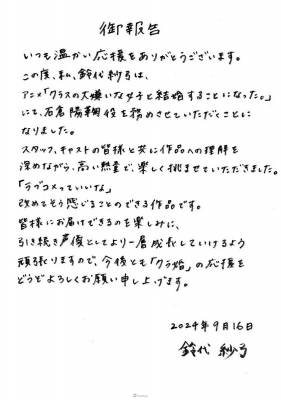 御報告
いつも温かい応援をありがとうございます。
この度、私、鈴代紗弓は、
アニメ「クラスの大嫌いな女子と結婚することになった。」
にて、石倉陽鞠役を務めさせていただくことに
なりました。
スタッフ、キャストの皆様と共に作品への理解を
深めながら、高い熱量で、楽しく挑ませていただきました。
「ラブコメっていいな」
改めてそう感じることのできる作品です。
皆様にお届けできるのを楽しみに、
引き続き声優としてより一層成長していけるよう
頑張りますので、今後とも「クラ婚」の応援を
どうぞよろしくお願い申し上げます。
2024年9月16日
鈴代 紗弓